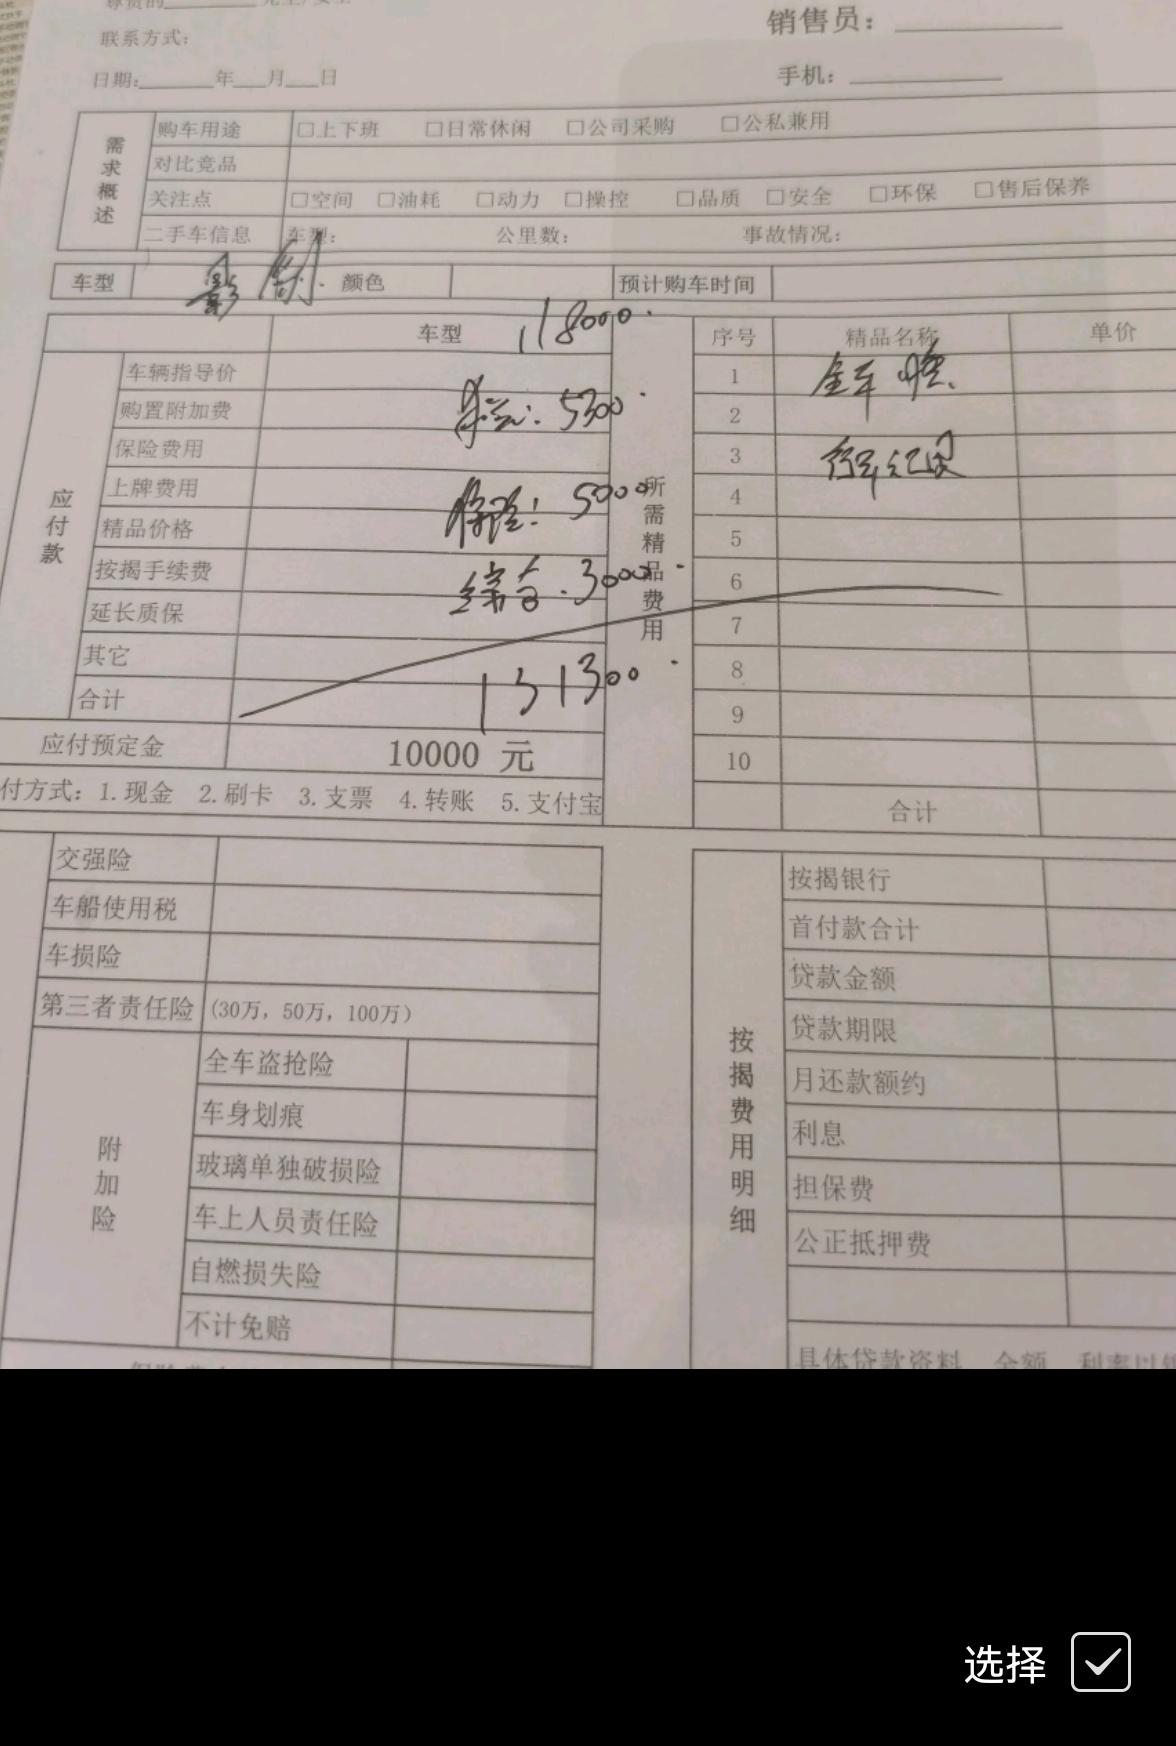 销售员：
联系方式：
手机：
日期： 年 月 日
需求概述
购车用途 □上下班 □日常休闲 □公司采购 □公私兼用
对比竞品
关注点 □空间 □油耗 □动力 □操控 □品质 □安全 □环保 □售后保养
二手车信息 车型： 公里数： 事故情况：
车型 影 颜色 预计购车时间
车型 118000. 序号 精品名称 单价
应付款
车辆指导价
购置附加费 5300.
保险费用
上牌费用 保险: 5000
精品价格
按揭手续费 综合. 3000.
延长质保
其它
合计 131300.
所需精品费用
1 全车膜.
2
3 行车记录
4
5
6
7
8
9
10
合计
应付预定金 10000 元
付方式：1.现金 2.刷卡 3.支票 4.转账 5.支付宝
交强险
车船使用税
车损险
第三者责任险 (30万，50万，100万)
附加险
全车盗抢险
车身划痕
玻璃单独破损险
车上人员责任险
自燃损失险
不计免赔
按揭费用明细
按揭银行
首付款合计
贷款金额
贷款期限
月还款额约
利息
担保费
公正抵押费
具体贷款资料 金额 利率以
选择